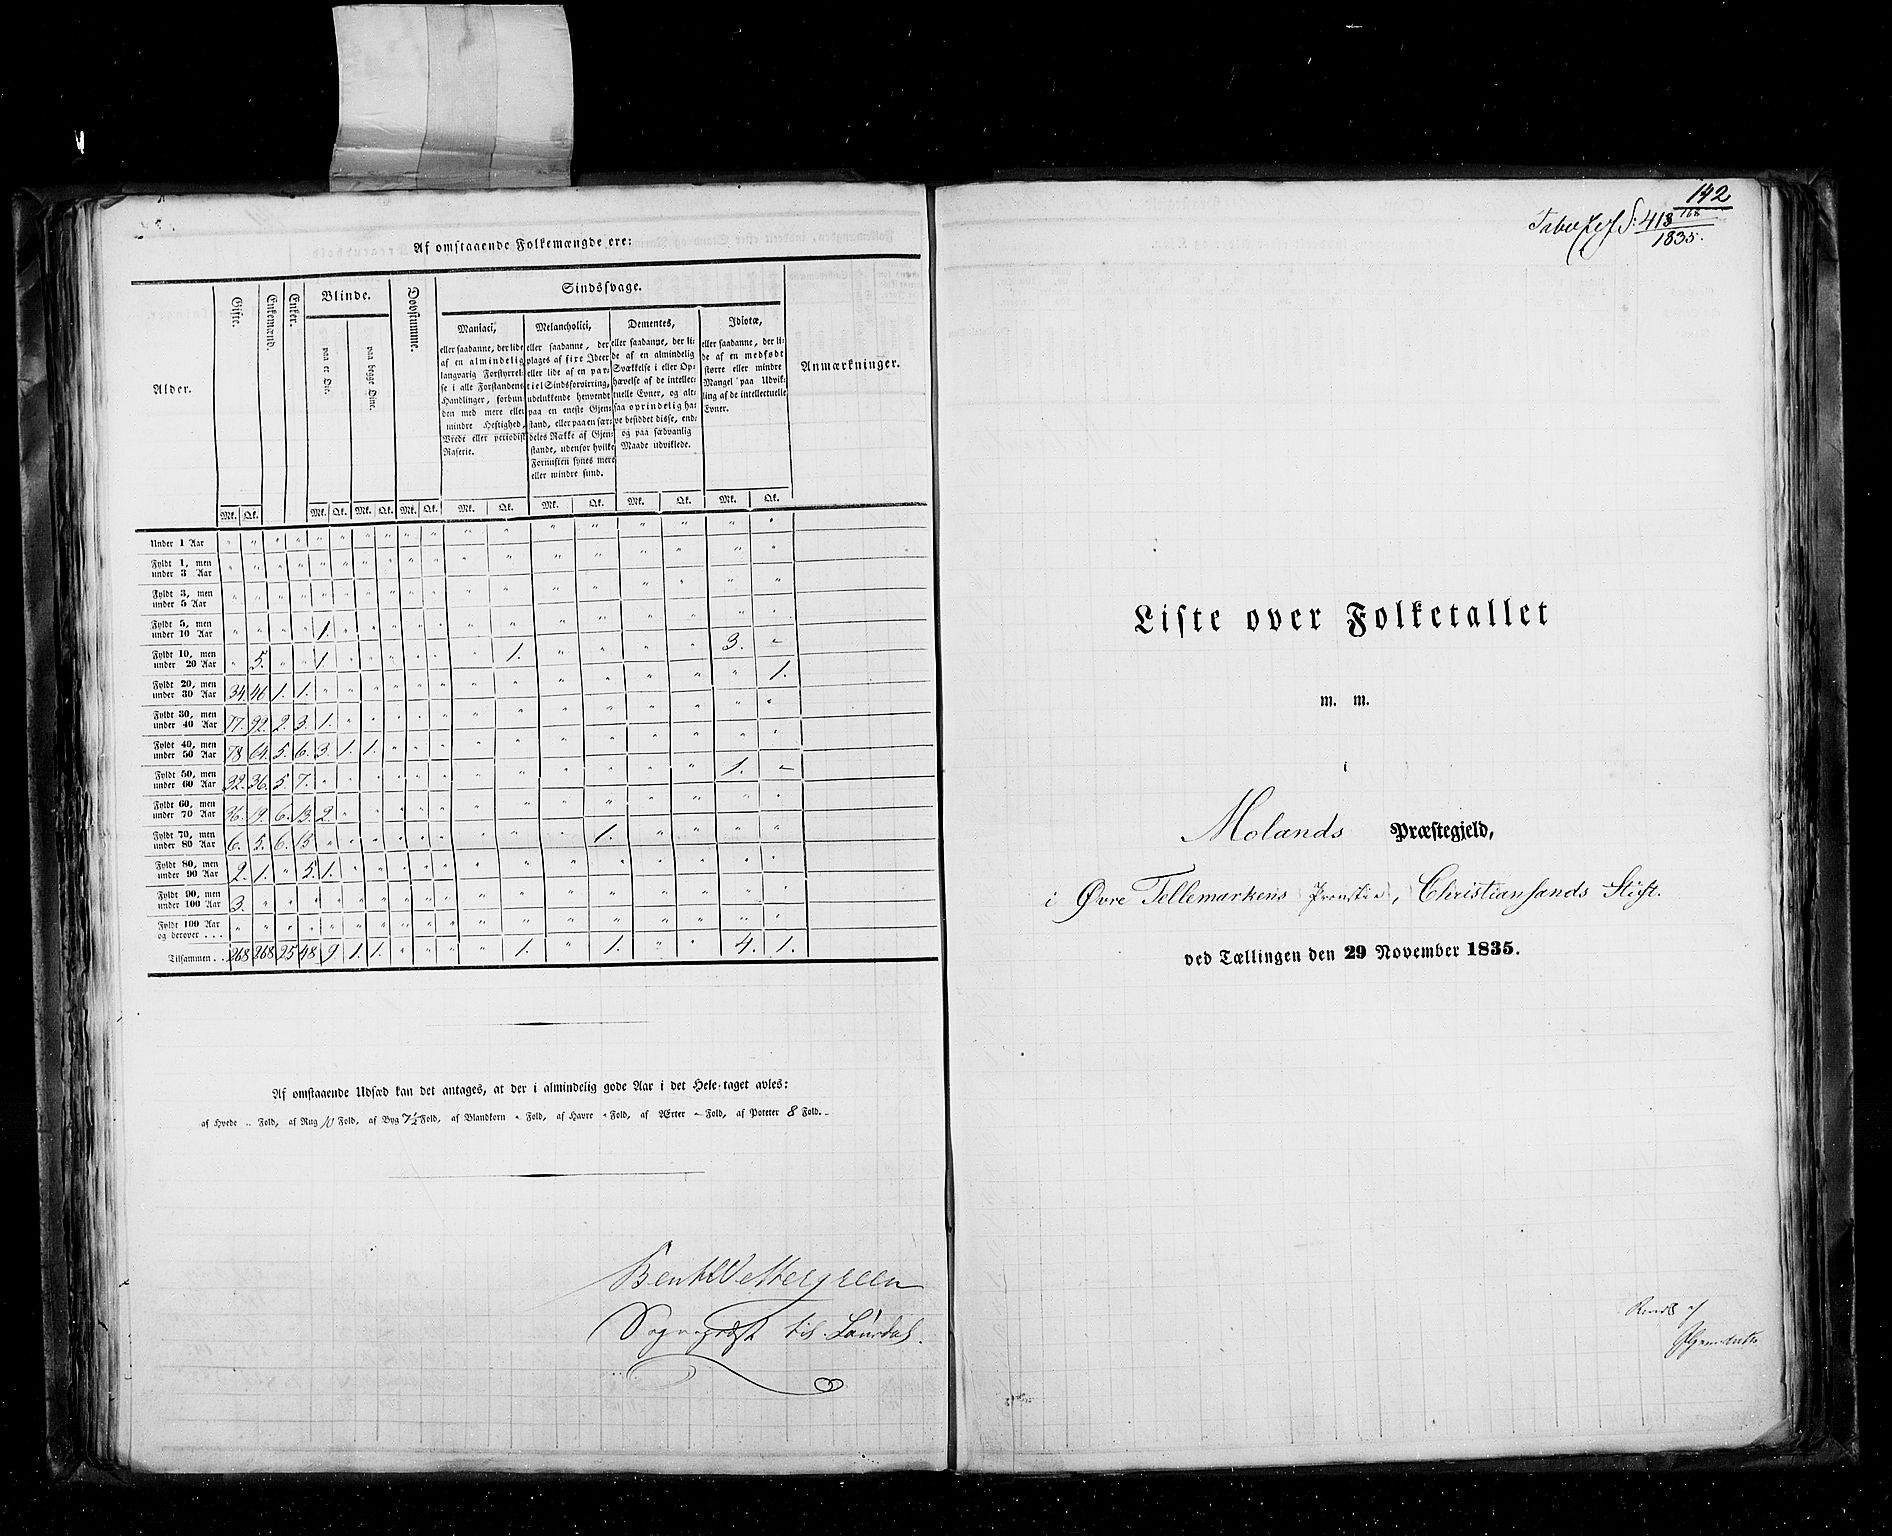 Af omstaaende Folkemængde ere:
Alder.
Gifte.
Enkemænd.
Enker.
Blinde.
paa et Øie.
paa begge Øine.
Døvstumme.
Sindssvage.
Maniaci,
eller saadanne, der lide
af en almindelig
langvarig Forstyrrel-
se i alle Forstandens
Handlinger, forbun
den med mere eller
mindre Heftighed,
Vrede eller periodisk
Raserie.
Melancholici,
eller saadanne, der
plages af fixe Ideer
eller lide af en par-
tiel Sindsforvirring,
udelukkende henvendt
paa en eneste Gjen-
stand, eller paa en sær-
deles Række af Gjen-
stande, udenfor hvilke
Fornuften synes mere
eller mindre sund.
Dementes,
eller saadanne, der li-
de af en almindelig
Svækkelse i eller Op-
hævelse af de intellec-
tuelle Evner, og alt-
saa oprindelig ha-
ve besiddet disse, end-
og paa sædvanlig
Maade udviklede.
Idiotæ,
eller saadanne, der li-
de af en medfødt
større eller mindre
Mangel paa Udvik-
ling af de intellectuelle
Evner.
Anmærkninger.
Mk. Qk. Mk. Qk. Mk. Qk. Mk. Qk. Mk. Qk. Mk. Qk. Mk. Qk. Mk. Qk.
Under 1 Aar " " " " " " " " " " " " " " " " " "
Fyldt 1, men under 3 Aar " " " " " " " " " " " " " " " " " "
Fyldt 3, men under 5 Aar " " " " " " " " " " " " " " " " " "
Fyldt 5, men under 10 Aar " " " " 1. " " " " " " " " " " " " "
Fyldt 10, men under 20 Aar " 5. " " 1. " " " " " " 1. " " " " 3. "
Fyldt 20, men under 30 Aar 34. 46 1. 1. " " " " " " " " " " " " " 1.
Fyldt 30, men under 40 Aar 77. 92. 2. 3. 1. " " " " " " " " " " " " "
Fyldt 40, men under 50 Aar 78 64. 5. 6. 3. 1. 1. " " " " " " " " " " "
Fyldt 50, men under 60 Aar 32. 36. 5. 7. " " " " " " " " " " " " 1. "
Fyldt 60, men under 70 Aar 36. 19. 6. 13. 2. " " " " " " " " " " " " "
Fyldt 70, men under 80 Aar 6. 5. 6. 13 " " " " " " " " " 1. " " " "
Fyldt 80, men under 90 Aar 2. 1. " 5. 1. " " " " " " " " " " " " "
Fyldt 90, men under 100 Aar 3. " " " " " " " " " " " " " " " " "
Fyldt 100 Aar og derover . . . " " " " " " " " " " " " " " " " " "
Tilsammen . . 268 268 25 48 9 1. 1. " " " " 1. " 1. " " 4. 1.
Af omstaaende Udsæd kan det antages, at der i almindelig gode Aar i det Hele taget avles:
af Hvede " Fold, af Rug 10 Fold, af Byg 7½ Fold, af Blandkorn " Fold, af Havre " Fold, af Ærter " Fold, af Poteter 8 Fold.
Bent Wettergreen
Sognepræst til Laurdal.
142
S: 413 168
1835.
Liste over Folketallet
m. m.
i
Molands Præstegjeld,
i Øvre Tellemarkens Provstie, Christiansands Stift.
ved Tællingen den 29 November 1835.